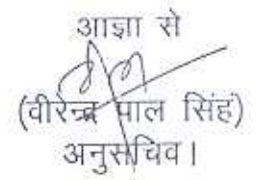 आज्ञा से
(वीरेन्द्र पाल सिंह)
अनुसचिव।